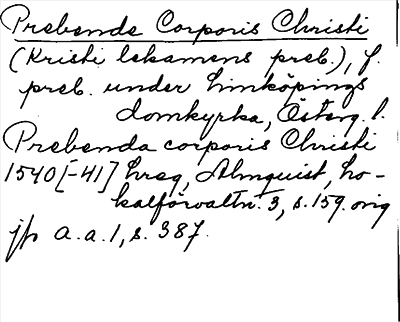 Prebende Corporis Christi
(Kristi lekamens preb.), f.
preb. under Linköpings
domkyrka, Österg. l.
Prebenda corporis Christi
1540[-41] hreg, Almquist, Lo-
kalförvaltn. 3, s. 159. orig
jfr a.a. 1, s. 387.